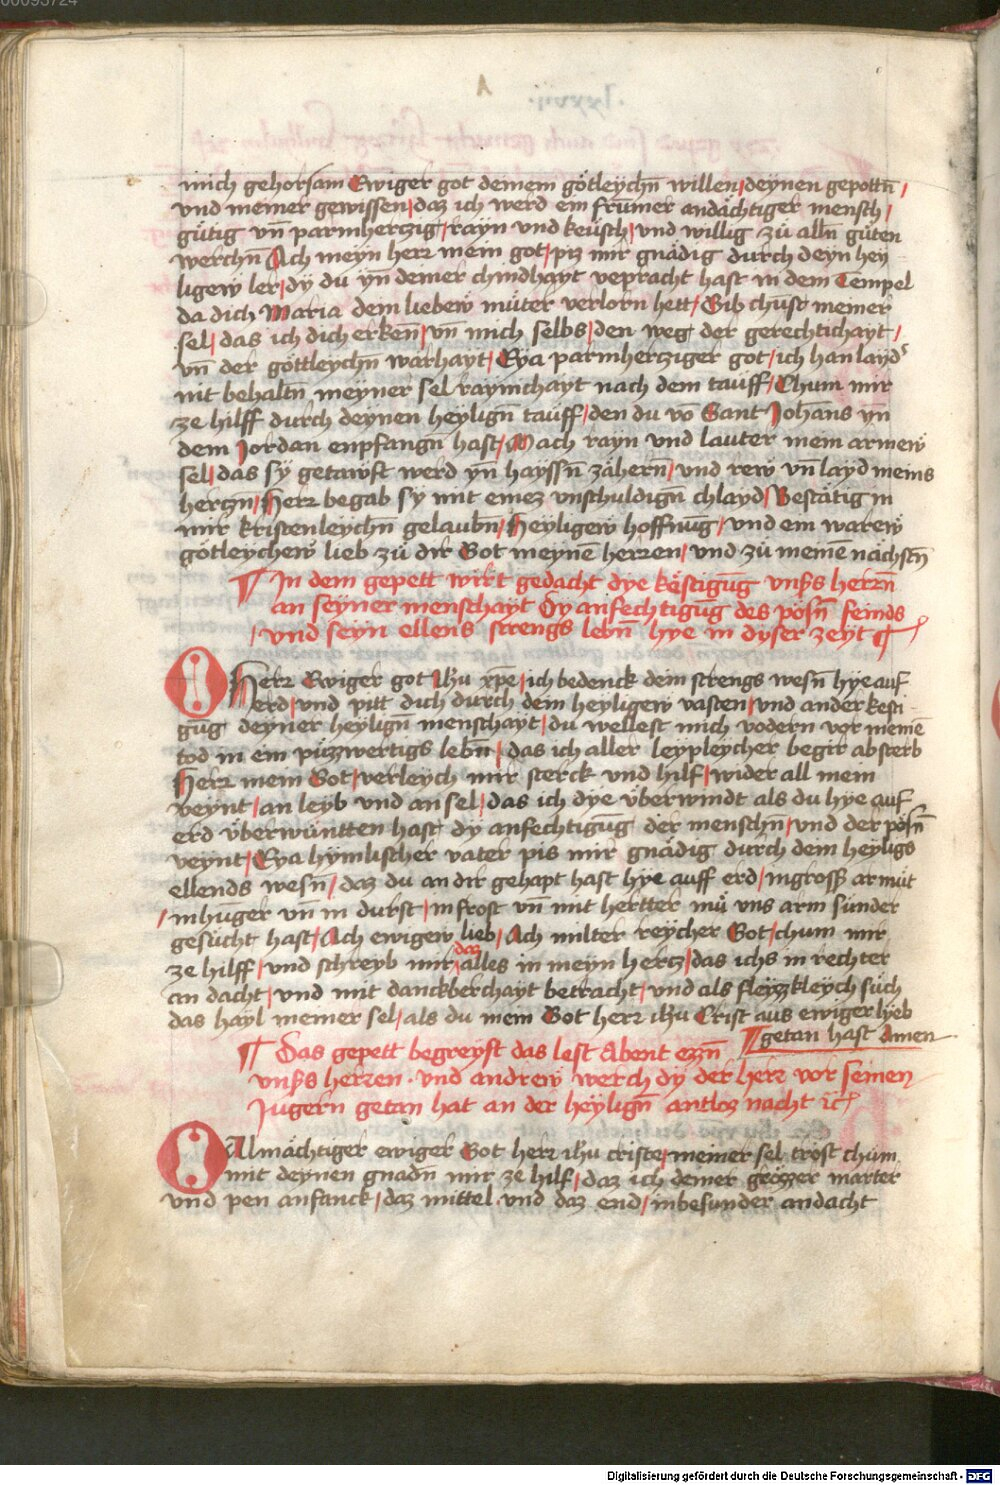 mich gehorsam Ewiger got deinem götleychn̄ willen / deynen gepottn̄ /
vnd meiner gewissen / daz ich werd ein frum̄er andächtiger mensch /
gütig vn̄ parmherczig / rayn vnd keüsch / vnd willig zü alln̄ güten
werchn̄ Ach meyn herr mein got / piz mir gnädig durch deyn hey
ligew ler / dy du yn̄ deiner chindhayt vepracht hast in dem Tempel
da dich Maria dein liebew müter verlorn hett / Gib chust meiner
sel / das ich dich erken̄ / vn̄ mich selbs / den weg der gerechtichayt /
vn̄ der göttleychn̄ warhayt / Eya parmherziger got / ich han layd
nit behaltn̄ meyner sel raynichayt nach dem tauff / Chum mir
ze hilff durch deynen heylign̄ tauff / den du vō Sant Johans yn
dem Jordan enpfangn̄ hast / Mach rayn vnd lauter mein armew
sel / das sy getawft werd yn̄ hayssn̄ zähern̄ / vnd rew vn̄ layd meins
herczn̄ / Herr begab sy mit einez vnschuldign̄ chlayd / Bestätig in
mir kristenleychn̄ gelaubn̄ / Heyligew hoffnūg / vnd ein warew
götleychew lieb zü dir Got meynē herren / vnd zü meinē nächstn̄
¶ In dem gepett wirt gedacht dye kestigūg vnsers herrn̄
an seyner menschayt Dy anfechtigūg des pösn̄ feinds
/ vnd seyn ellens strengs lebn̄ hye in dyser zeyt ¶
O Herr Ewiger got Jhu xp̄e / ich bedenck dein strengs wesn̄ hye auf
erd / vnd pitt dich durch dein heyligew vasten / vnd ander kesti
gūg deyner heylign̄ menschayt / du wellest mich vodern vor meinē
tod in ein püzzwertigs lebn̄ / das ich aller leypleycher begir absterb
Herr mein Got / verleych mir sterck vnd hilf / wider all mein
veynt / an leyb vnd an sel / das ich dye überwindt als du hye auf
erd überwüntten hast dy anfechtigūg der menschn̄ / vnd der pösn̄
veynt / Eya hymlischer vater pis mir gnädig durch dein heyligs
ellends wesn̄ / daz du an dir gehapt hast hye auff erd / in grosser armüt
/ in hunger vn̄ in durst / in frost vn̄ mit hertter mü vns arm sünder
gesücht hast / Ach ewigew lieb / Ach milter reycher Got / chum mir
ze hilff / vnd schreyb mir daz alles in meyn hercz / das ichs in rechter
an dacht / vnd mit danckberchayt betracht / vnd als fleyzzkleych süch
das hayl meiner sel / als du mein Got herr ihu Crist aus ewiger lyeb
¶ getan hast Amen
¶ Das gepett begreyft das lest Abent ezzn̄
vnsers herren · vnd andrew werch dy der herr vor seinen
Jugern getan hat an der heylign̄ antloz nacht ic̄
O Almächtiger ewiger Got herr ihu criste / meiner sel tröst chum
mit deynen gnadn̄ mir ze hilf / daz ich deiner grözzer marter
vnd pen anfanck / daz mittel · vnd daz end / in besunder andacht
Digitalisierung gefördert durch die Deutsche Forschungsgemeinschaft - DFG